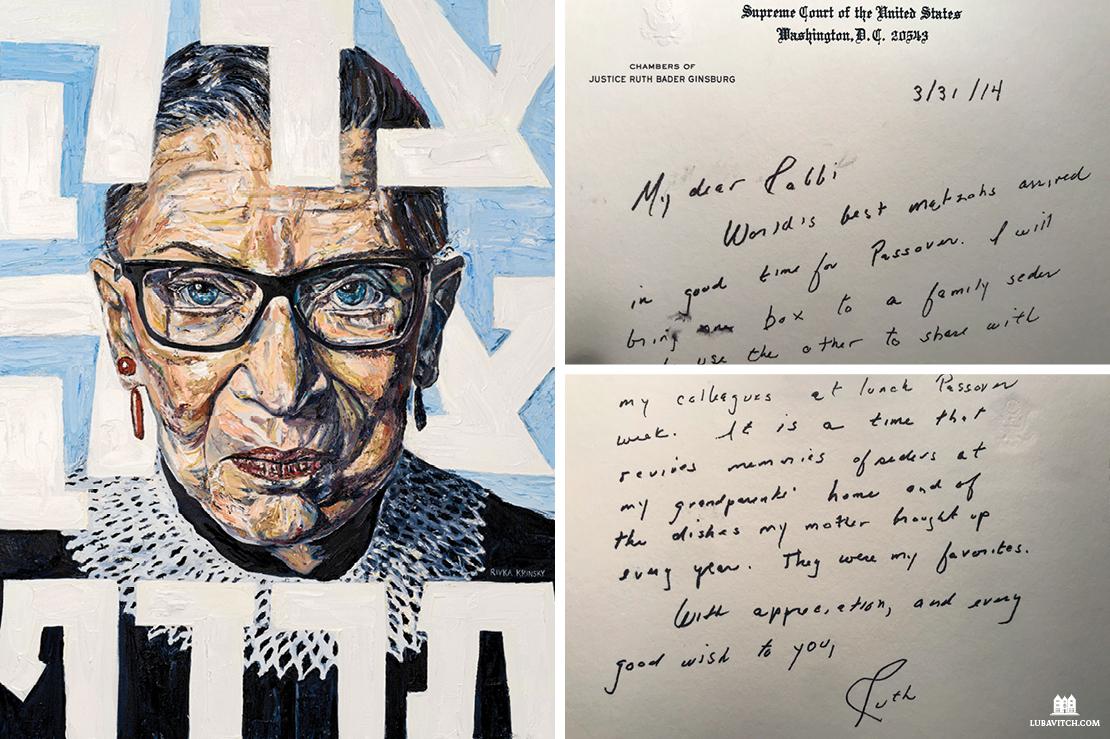 RIVKA KRINSKY
Supreme Court of the United States
Washington, D.C. 20543
CHAMBERS OF
JUSTICE RUTH BADER GINSBURG
3/31/14
My dear Rabbi
World's best matzohs arrived
in good time for Passover. I will
bring one box to a family seder
use the other to share with
my colleagues at lunch Passover
week. It is a time that
revives memories of seders at
my grandparents' home and of
the dishes my mother brought up
every year. They were my favorites.
With appreciation, and every
good wish to you,
Ruth
LUBAVITCH.COM